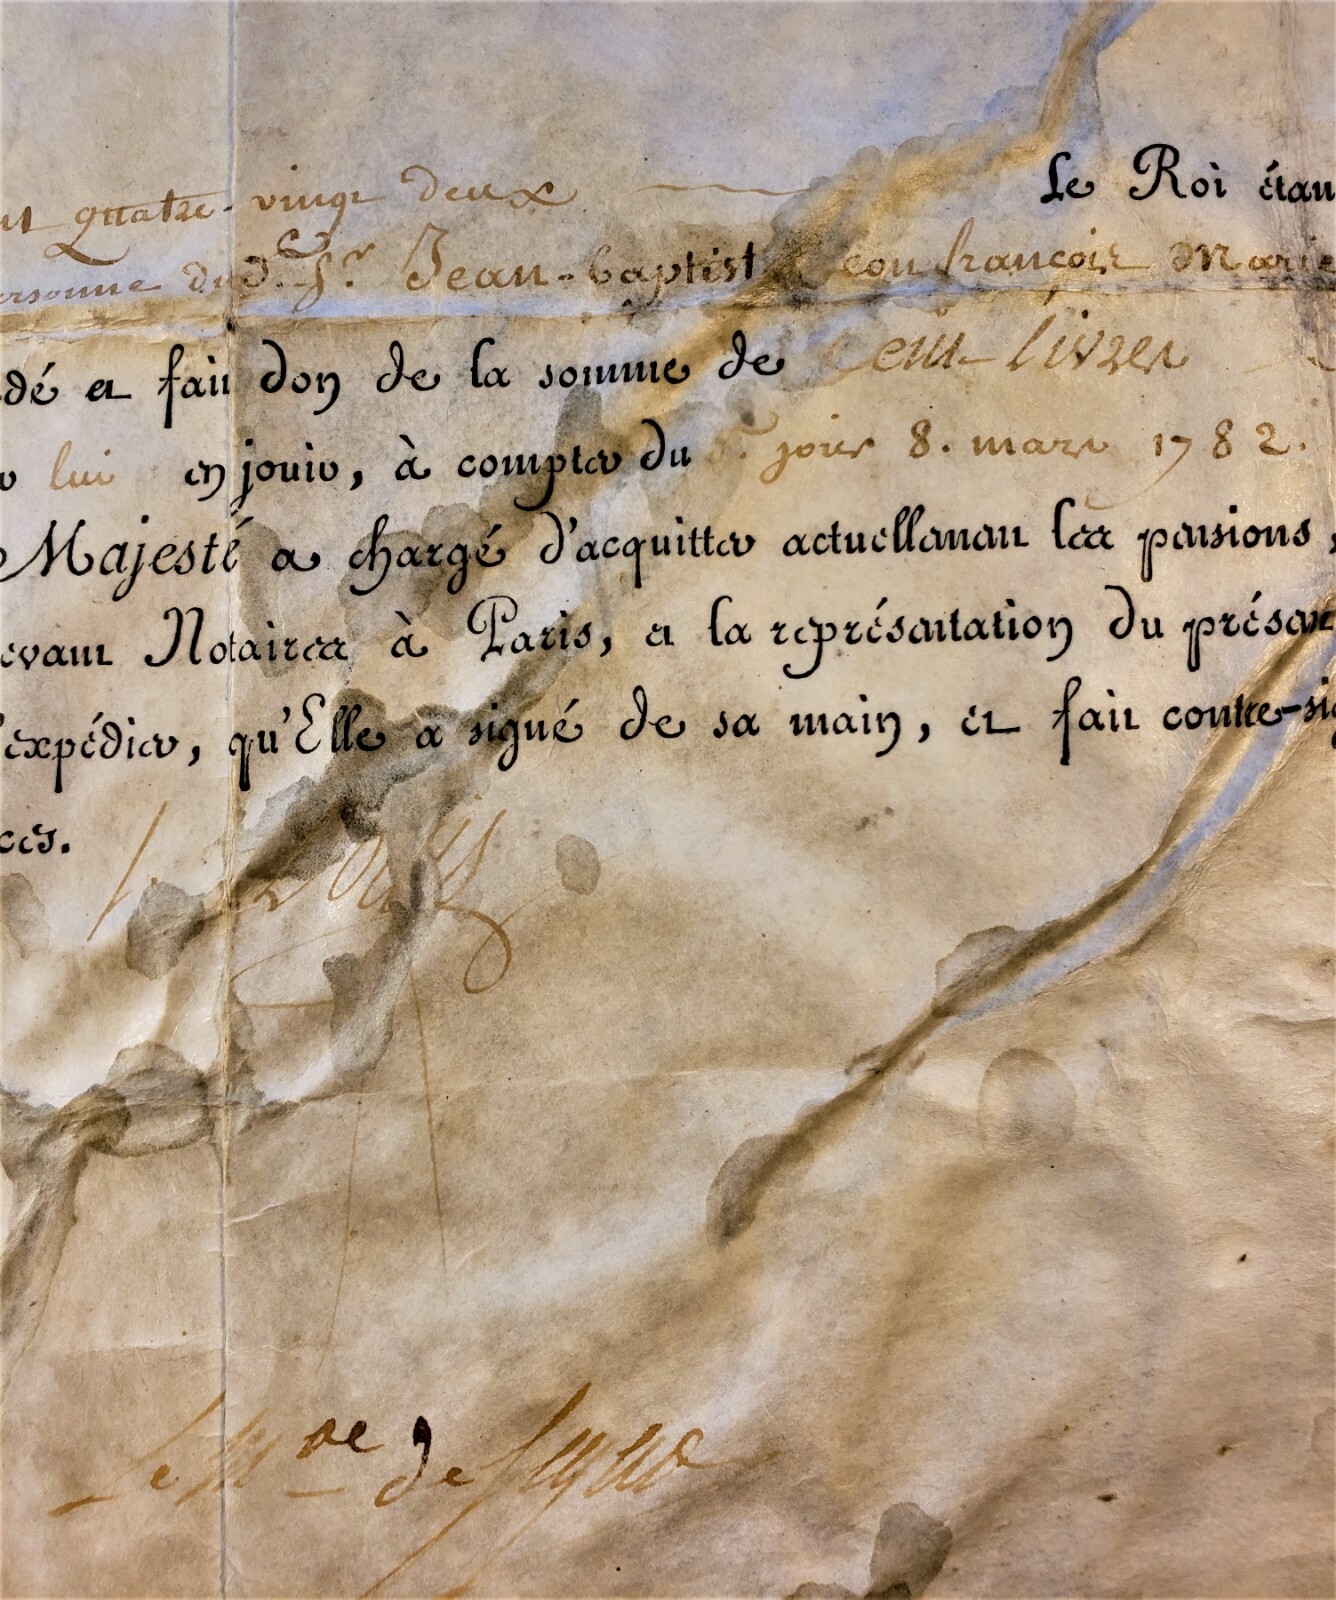 quatre-vingt deux Le Roi étan
ersonne du d. Sr. Jean-baptist Leon françois Marie
dé et fait don de la somme de Cent livres
lui en jouir, à compter du jour 8. mars 1782.
Majesté a chargé d'acquitter actuellement les pensions,
evant Notaires à Paris, et la représentation du présent
expédier, qu'Elle a signé de sa main, et fait contre-sig
ces.
Louis
Le Mis de Segur